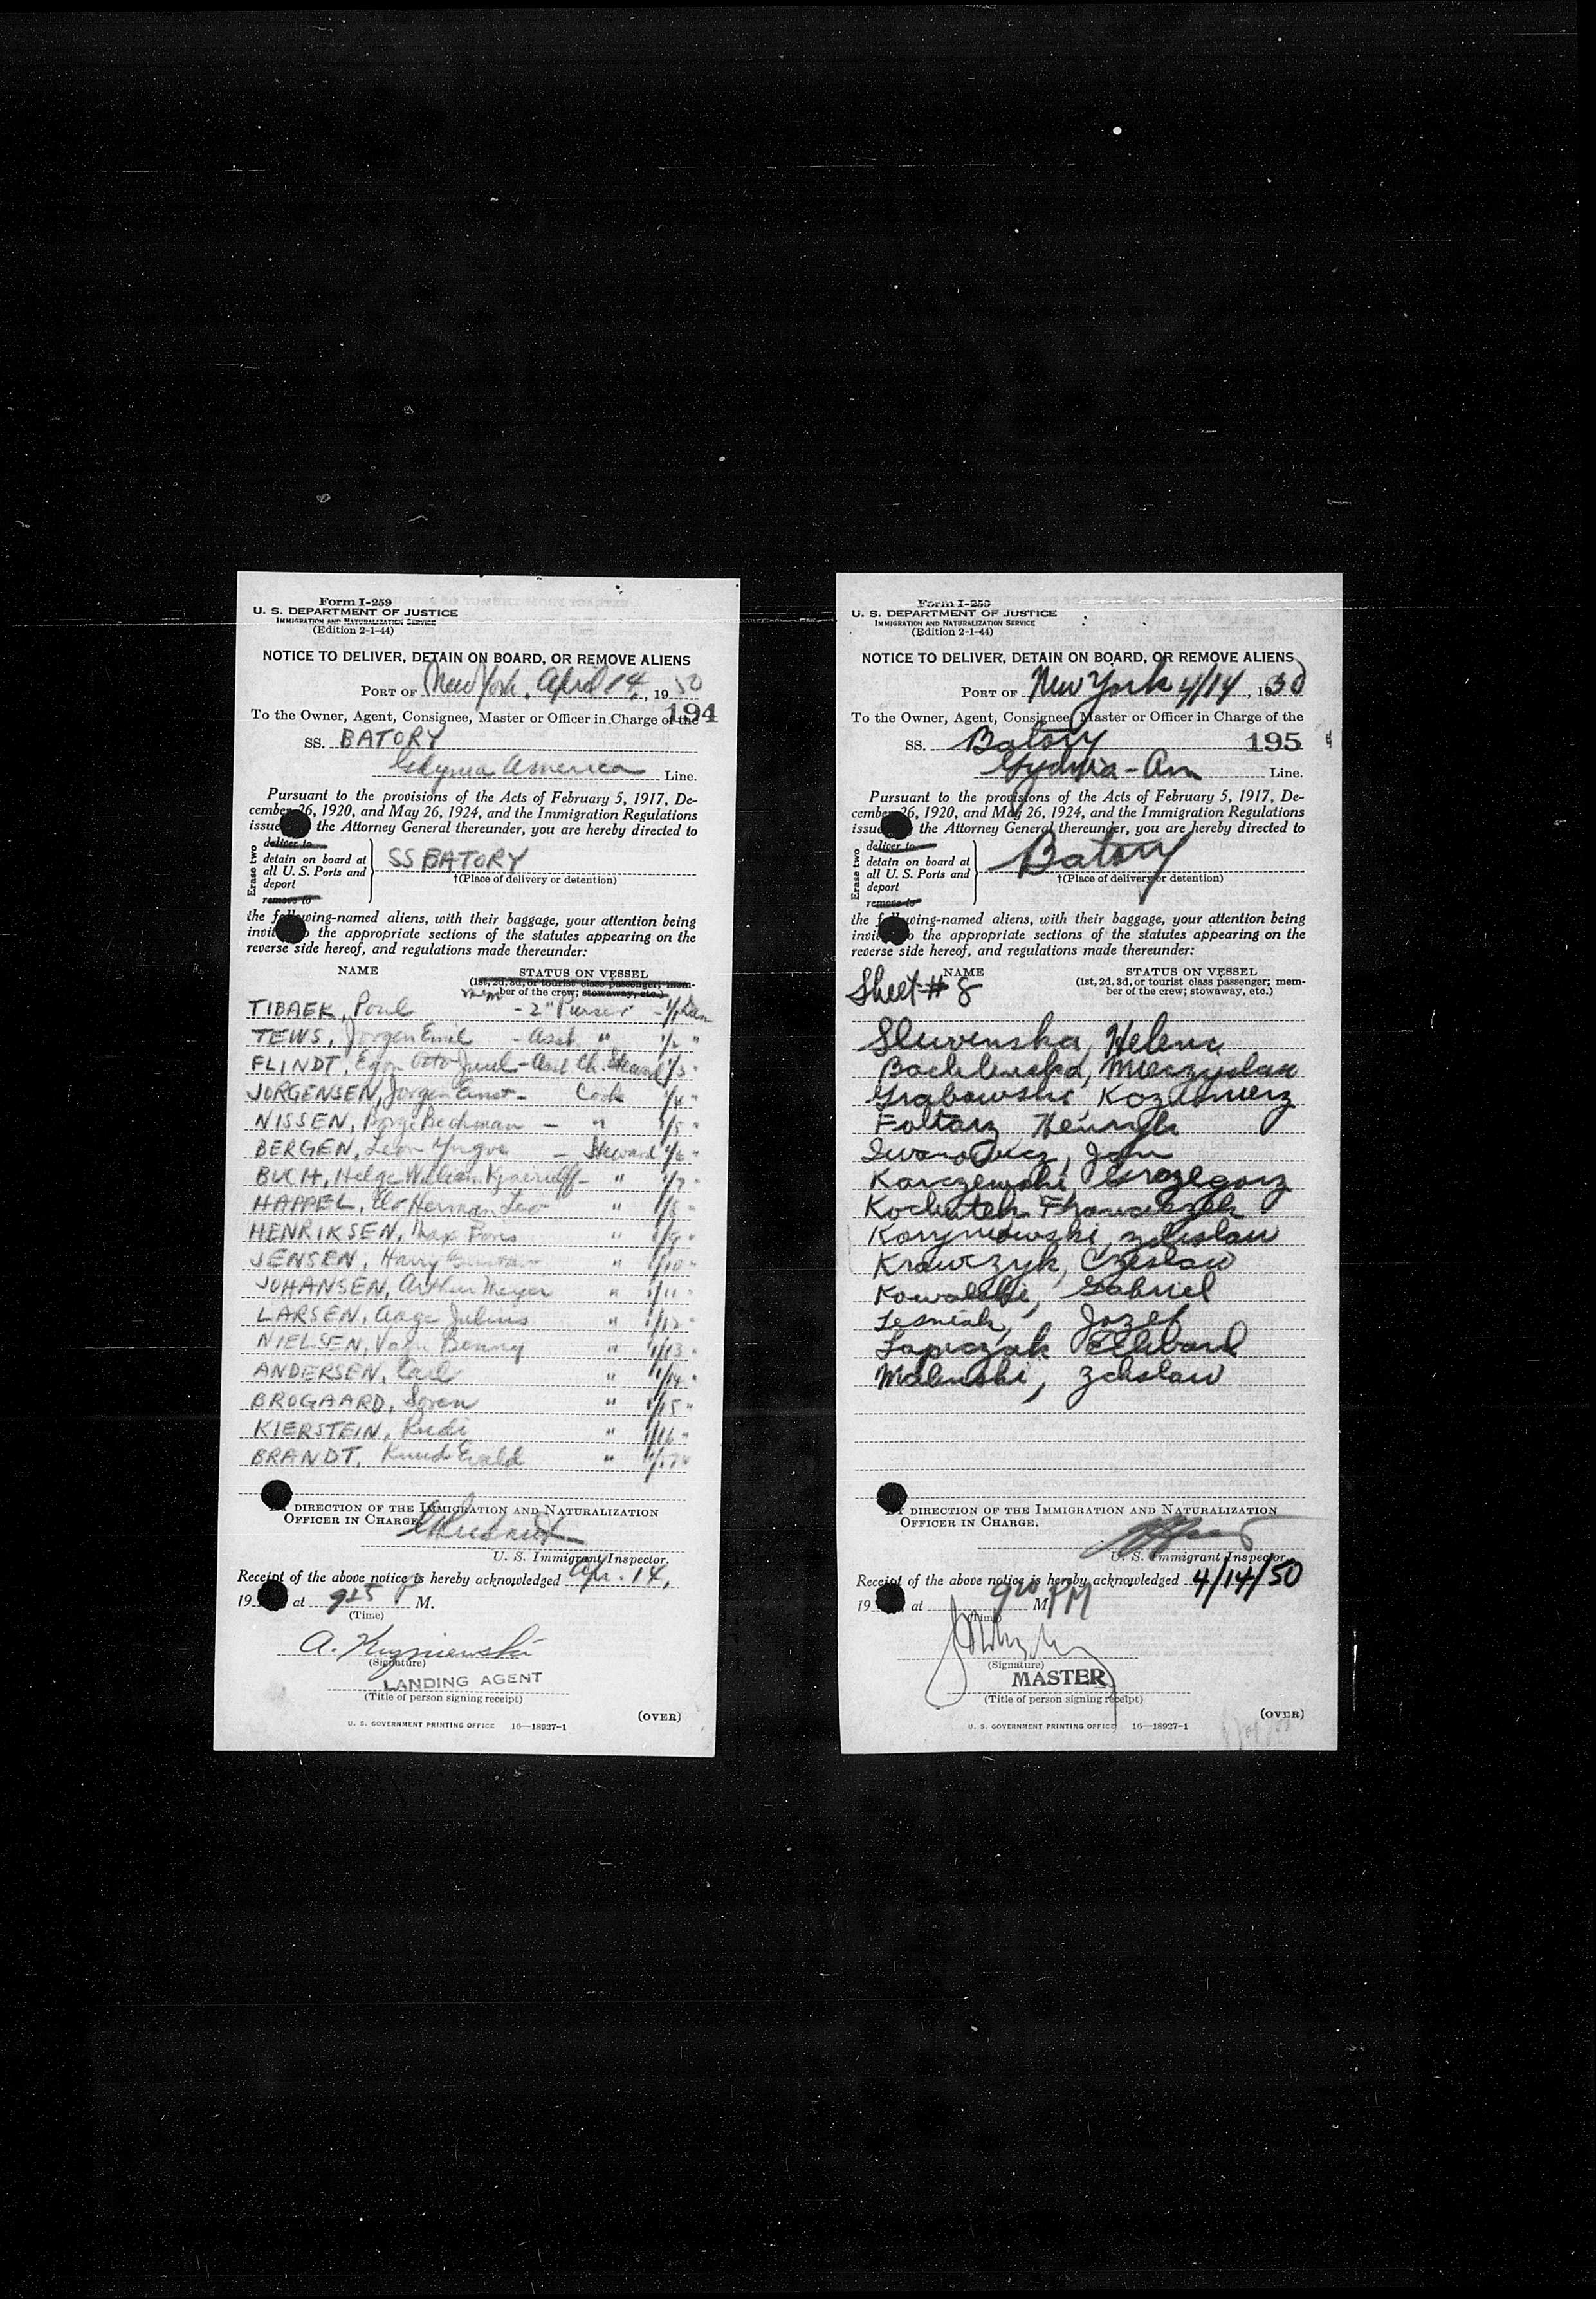 Form I-259
U. S. DEPARTMENT OF JUSTICE
IMMIGRATION AND NATURALIZATION SERVICE
(Edition 2-1-44)
NOTICE TO DELIVER, DETAIN ON BOARD, OR REMOVE ALIENS
PORT OF New York, April 14, 1950
194
To the Owner, Agent, Consignee, Master or Officer in Charge of the
SS. BATORY
Gdynia America Line.
Pursuant to the provisions of the Acts of February 5, 1917, De-
cember 26, 1920, and May 26, 1924, and the Immigration Regulations
issue the Attorney General thereunder, you are hereby directed to
Erase two
deliver to
detain on board at
all U. S. Ports and
deport
remove to
SS BATORY
†(Place of delivery or detention)
the following-named aliens, with their baggage, your attention being
invit the appropriate sections of the statutes appearing on the
reverse side hereof, and regulations made thereunder:
NAME STATUS ON VESSEL
(1st, 2d, 3d, or tourist class passenger; mem-
mem ber of the crew; stowaway, etc.)
TIBAEK, Poul - 2" Purser - 1/1 Dan
TEWS, Jorgen Emil - Asst " 1/2 "
FLINDT, Egon Otto Juul - Asst Ch. Steward 1/3 "
JORGENSEN, Jorgen Ernst - Cook 1/4 "
NISSEN, Borge Bechman - " 1/5 "
BERGEN, Leon Yngve - Steward 1/6 "
BUCH, Helge William - " 1/7 "
HAPPEL, Herman Leo " 1/8 "
HENRIKSEN, Max " 1/9 "
JENSEN, Harry " 1/10 "
JOHANSEN, Arthur Meyer " 1/11 "
LARSEN, Aage Julius " 1/12 "
NIELSEN, Vagn Benny " 1/13 "
ANDERSEN, Carl " 1/14 "
BROGAARD, Soren " 1/15 "
KIERSTEIN, Rudi " 1/16 "
BRANDT, Knud Evald " 1/17 "
BY DIRECTION OF THE IMMIGRATION AND NATURALIZATION
OFFICER IN CHARGE.
U. S. Immigrant Inspector.
Receipt of the above notice is hereby acknowledged Apr. 14,
19 at 925 P M.
(Time)
A. Kuzniewski
(Signature)
LANDING AGENT
(Title of person signing receipt)
(OVER)
U. S. GOVERNMENT PRINTING OFFICE 16—18927-1
Form I-259
U. S. DEPARTMENT OF JUSTICE
IMMIGRATION AND NATURALIZATION SERVICE
(Edition 2-1-44)
NOTICE TO DELIVER, DETAIN ON BOARD, OR REMOVE ALIENS
PORT OF New York 4/14, 1950
To the Owner, Agent, Consignee, Master or Officer in Charge of the
SS. Batory 195
Gydnia-Am Line.
Pursuant to the provisions of the Acts of February 5, 1917, De-
cember 26, 1920, and May 26, 1924, and the Immigration Regulations
issue the Attorney General thereunder, you are hereby directed to
Erase two
deliver to
detain on board at
all U. S. Ports and
deport
remove to
Batory
†(Place of delivery or detention)
the following-named aliens, with their baggage, your attention being
invit the appropriate sections of the statutes appearing on the
reverse side hereof, and regulations made thereunder:
NAME STATUS ON VESSEL
Sheet # 8 (1st, 2d, 3d, or tourist class passenger; mem-
ber of the crew; stowaway, etc.)
Sluvenska, Helena
Mieczyslaw
Grabowski, Kozimierz
Foltarz Henryk
Iwanowicz, Jan
Karczewski Grzegorz
Franciszek
Zdislaw
Krawczyk, Czeslaw
Kowalski, Gabriel
Lesniak, Jozef
Lapiczak Edward
Malinski, Zdislaw
BY DIRECTION OF THE IMMIGRATION AND NATURALIZATION
OFFICER IN CHARGE.
U. S. Immigrant Inspector.
Receipt of the above notice is hereby acknowledged 4/14/50
19 at 920 PM M.
(Time)
(Signature)
MASTER
(Title of person signing receipt)
(OVER)
U. S. GOVERNMENT PRINTING OFFICE 16—18927-1